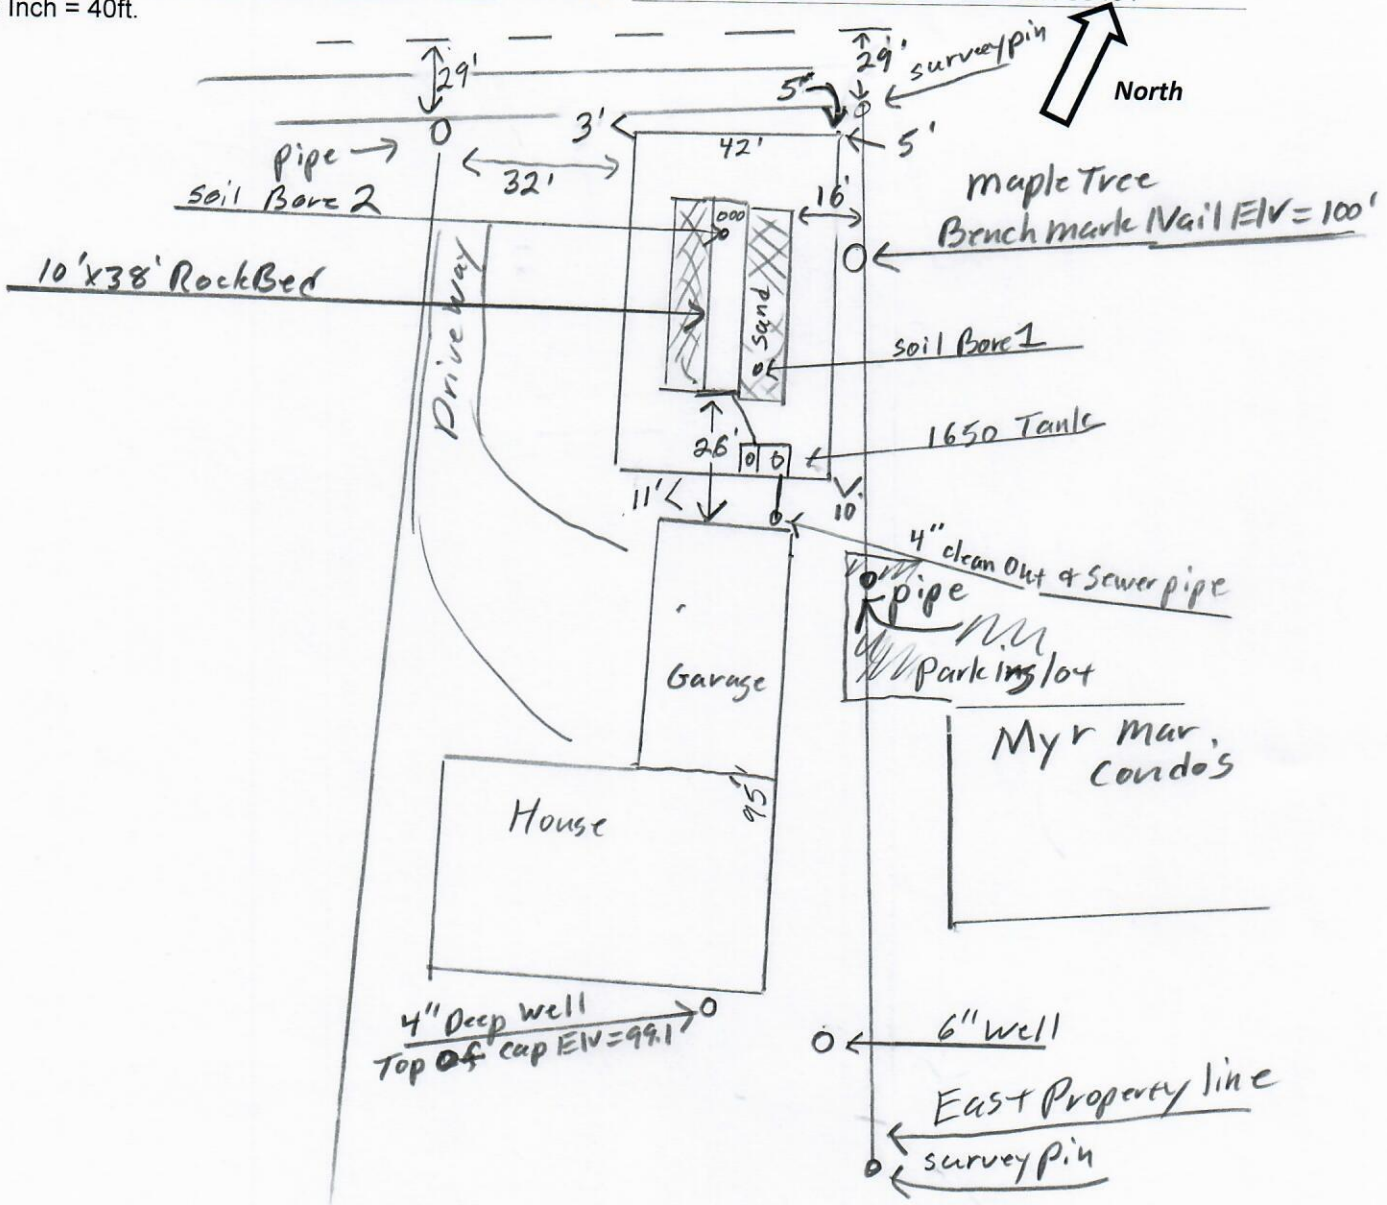 Inch = 40ft.
29'
29'
survey pin
North
5"
3'
42'
5'
pipe
32'
16'
Maple Tree
Bench mark Nail Elv = 100'
soil Bore 2
10'x38' Rock Bed
Driveway
Sand
soil Bore 1
1650 Tank
26'
11'
10'
4" clean out & Sewer pipe
pipe
Parking lot
Garage
Myr mar.
Condo's
95'
House
4" Deep well
Top of cap Elv = 99.1
6" well
East Property line
survey pin